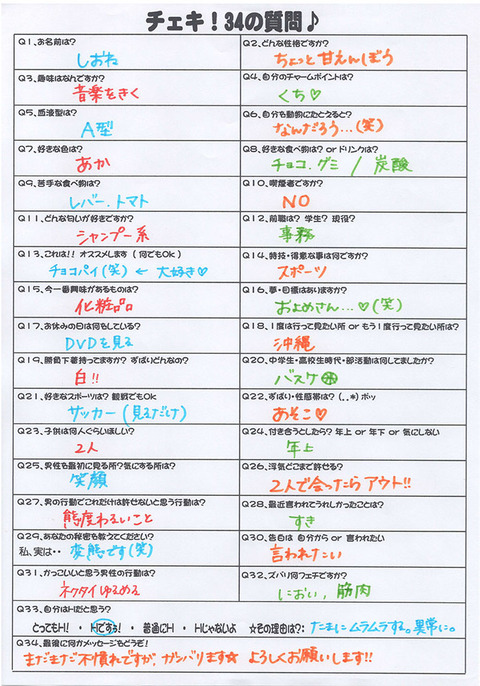 チェキ！34の質問♪
Q1、お名前は？
しおね
Q2、どんな性格ですか？
ちょっと甘えんぼう
Q3、趣味はなんですか？
音楽をきく
Q4、自分のチャームポイントは？
くち♡
Q5、血液型は？
A型
Q6、自分を動物にたとえると？
なんだろう…(笑)
Q7、好きな色は？
あか
Q8、好きな食べ物は？ or ドリンクは？
チョコ．グミ / 炭酸
Q9、苦手な食べ物は？
レバー．トマト
Q10、喫煙者ですか？
NO
Q11、どんな匂いが好きですか？
シャンプー系
Q12、前職は？ 学生？ 現役？
事務
Q13、これは!! オススメします（何でもOk）
チョコパイ(笑) ← 大好き♡
Q14、特技・得意な事は何ですか？
スポーツ
Q15、今一番興味があるものは？
化粧品
Q16、夢・目標はありますか？
およめさん…♡(笑)
Q17、お休みの日は何をしている？
DVDを見る
Q18、1度は行って見たい所 or もう1度行って見たい所は？
沖縄
Q19、勝負下着持ってますか？ ずばりどんなの？
白!!
Q20、中学生・高校生時代・部活動は何してましたか？
バスケ
Q21、好きなスポーツは？ 観戦でもOK
サッカー(見るだけ)
Q22、ずばい・性感帯は？（．．*）ポッ
あそこ♡
Q23、子供は何人ぐらいほしい？
2人
Q24、付き合うとしたら？ 年上 or 年下 or 気にしない
年上
Q25、男性を最初に見る所？気にする所は？
笑顔
Q26、浮気どこまで許せる？
2人で会ったらアウト!!
Q27、男の行動でこれだけは許せないと思う行動は？
態度わるいこと
Q28、最近言われてうれしかったことは？
すき
Q29、あなたの秘密を教えてください？
私、実は・・ 変態です(笑)
Q30、告白は 自分から or 言われたい
言われたい
Q31、かっこいいと思う男性の行動は？
ネクタイゆるめる
Q32、ズバリ何フェチですか？
におい，筋肉
Q33、自分はHだと思う？
とってもH！ ・ Hですぅ！ ・ 普通にH ・ Hじゃないよ ☆その理由は？: たまにムラムラする。異常に。
Q34、最後に何かメッセージをどうぞ！
まだまだ不慣れですが、ガンバります☆ よろしくお願いします!!